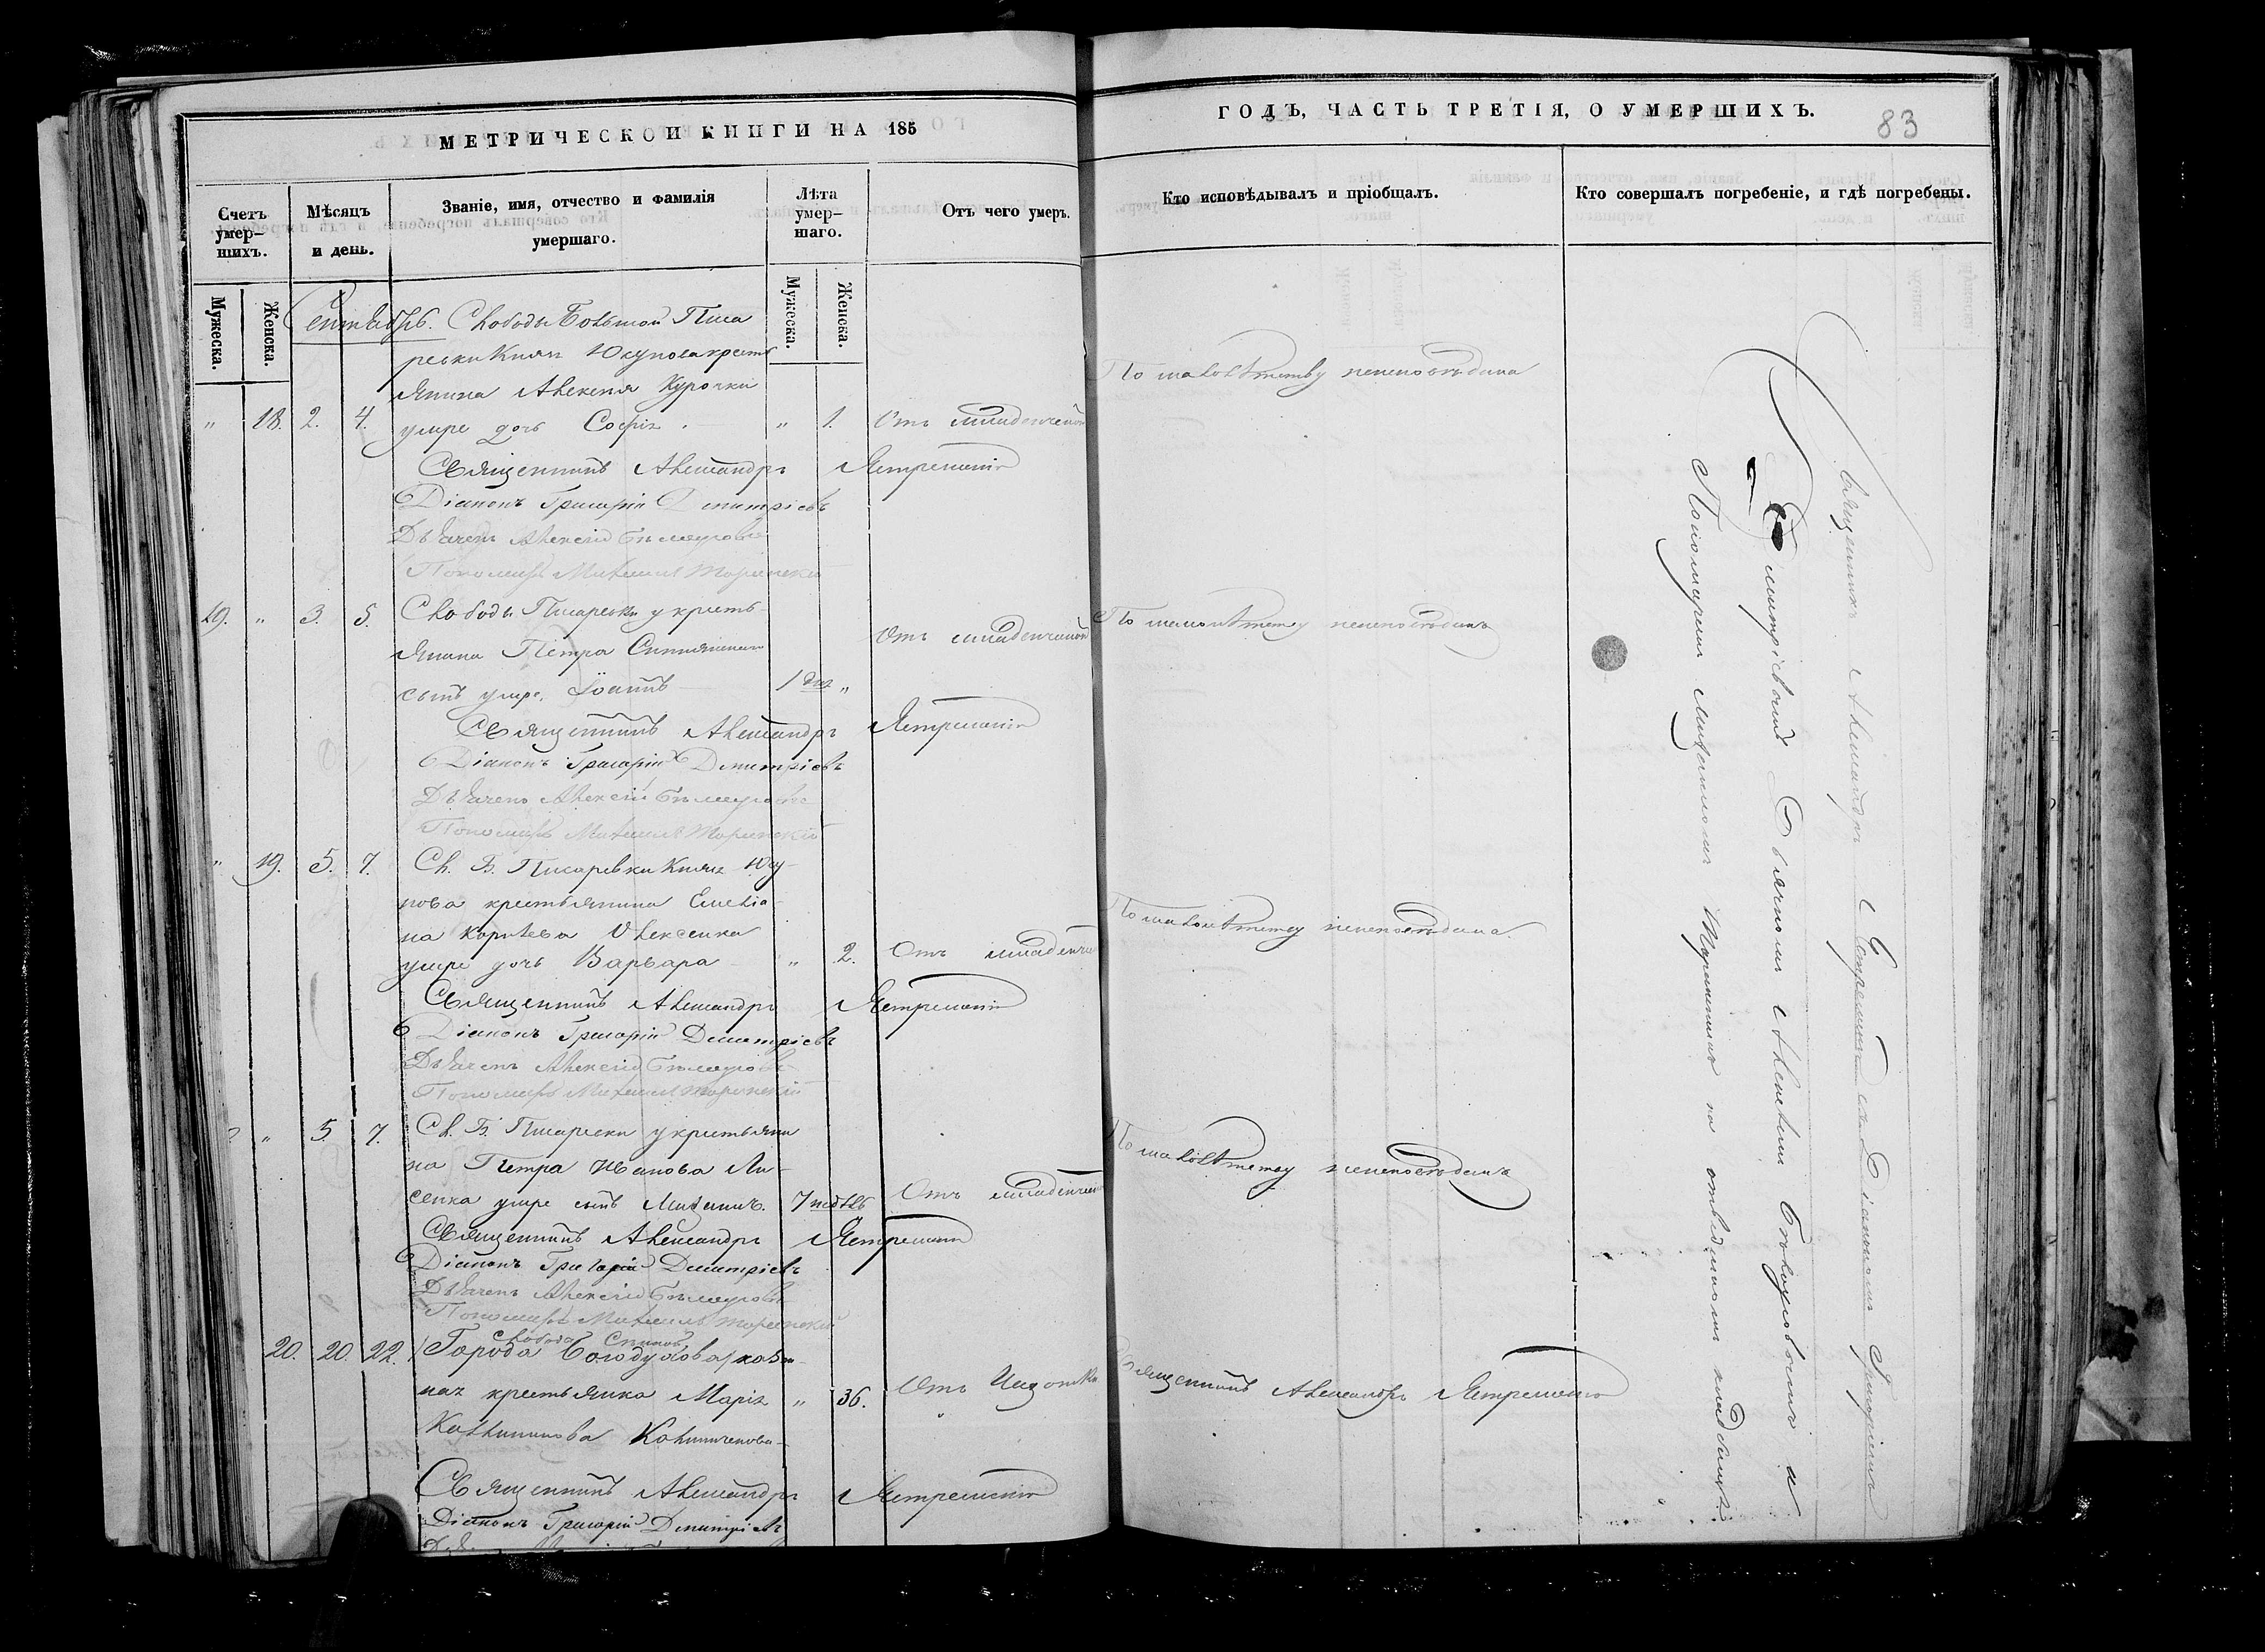 МЕТРИЧЕСКОЙ КНИГИ НА 185
ГОДЪ, ЧАСТЬ ТРЕТІЯ, О УМЕРШИХЪ.
83
Счетъ умер-
шихъ.
Мѣсяцъ
и день.
Званіе, имя, отчество и фамилія
умершаго.
Лѣта
умер-
шаго.
Отъ чего умеръ.
Кто исповѣдывалъ и пріобщалъ.
Кто совершалъ погребеніе, и гдѣ погребены.
Мужеска.
Женска.
Мужеска.
Женска.
Сентябрь. Слободы Большой Писа
ревки Князя Юсупова кресть
янина Алексея Курочки
" 18. 2. 4. умре дочь Софія " 1. Отъ младенческой
По малолѣтству неисповѣдана
Священникъ Александръ Ястремскій
Діаконъ Григорій Дмитріевъ
Дьячекъ Алексій
Пономарь Михаилъ
19. " 3. 5. Слободы Писаревки у кресть
янина Петра
сынъ умре Іоаннъ 1 дня "
Отъ младенческой
По малолѣтству неисповѣданъ
Священникъ Александръ Ястремскій
Діаконъ Григорій Дмитріевъ
Дьячекъ Алексій
Пономарь Михаилъ
" 19. 5. 7. Сл. Б. Писаревки Князя Юсу-
пова крестьянина Емелія-
на Корнѣева Олексенка
умре дочь Варвара " 2. Отъ младенче
По малолѣтству неисповѣдана.
Священникъ Александръ Ястремскій
Діаконъ Григорій Дмитріевъ
Дьячекъ Алексій
Пономарь Михаилъ
" 5 7. Сл. Б. Писаревки у крестьяни
на Петра Иванова Ли-
сенка умре сынъ 7 недѣль
Отъ младенческ
По малолѣтству неисповѣданъ
Священникъ Александръ Ястремскій
Діаконъ Григорій Дмитріевъ
Дьячекъ Алексій
Пономарь Михаилъ
20. 20. 22. Города Богодухова
слобода
крестьянка Марія " 36. Отъ Чахотки
Священникъ Александръ Ястремскій
Калиникова Калиниченкова
Священникъ Александръ Ястремскій
Діаконъ Григорій Дмитріевъ
Священникъ Александръ Ястремскій съ Діакономъ Григоріемъ
Дмитріевымъ Дьячкомъ Алексіемъ и
Пономаремъ Михаиломъ на отведенномъ кладбищѣ